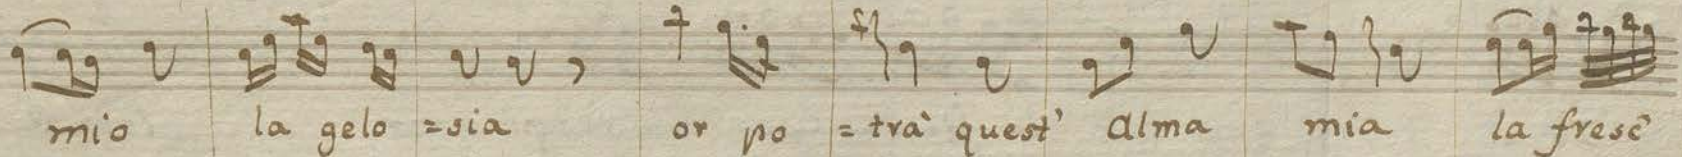 mio la gelo =sia or po =trà quest' alma mia la